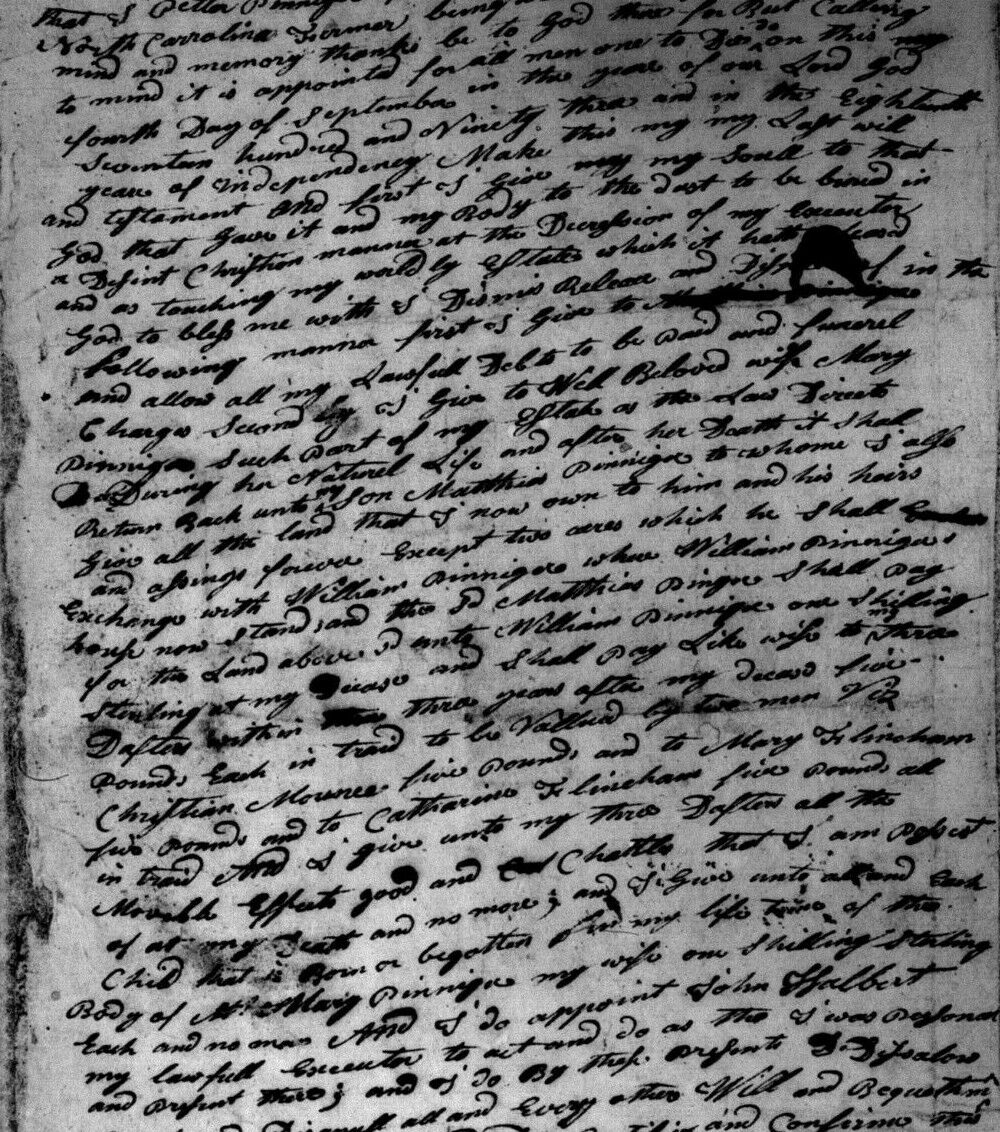 that I Petter Pinniger being
North Carrolina Farmer being
mind and memory thanks be to God therefor But Calling
to mind it is appointed for all men one to Die do on this my
fourth Day of September in the yeare of our Lord God
Seventen hundred and Ninety three and in the Eighteenth
yeare of Independency Make this my my Last will
and testament And first I Give my my Soull to that
God that Gave it and my Body to the dust to be buried in
a Desint Christian manner at the Decression of my Executor
and as touching my worldly Estate which it hath
God to bless me with I Dismis Releas and in the
following manner first I Give to
and allow all my Lawfull Debts to be Paid and funerel
Charges Secondly I Give to Well Beloved wife Mary
Pinniger Such Part of my Estate as the Law Directs
During her Naturel Life and after her Death it Shal
Return Back unto my Son Matthias Pinniger to whome I also
Give all the land that I now own to him and his heirs
and assings forever Except two acres which he Shall
Exchange with William Pinniger where William Pinnigers
house now Stands and the Sd Matthias Pinger Shall Pay
for the Land above Sd unto William Pinniger one Shilling
Sterling at my Decease and Shall Pay Like wise to my three
Dafters within three years after my decease five
Pounds Each in traid to be Vallued by two men Viz
Christian Mournee five Pounds and to Mary Flincham
five Pounds and to Catharine Flincham five Pounds all
in traid And I give unto my three Dafters all the
Movable Effects good and Chattles that I am Posest
of at my Death and no more; and I Give unto all and Each
Child that is Born or begotten in my life time of the
Body of Mrs Mary Pinniger my wife one Shilling Sterling
Each and no more And I do appoint John Halbert
my lawfull Executor to act and do as tho I was Personal
and Present there; and I do By these Presents Disalow
all and Every other Will and Bequethm
and Confirme this